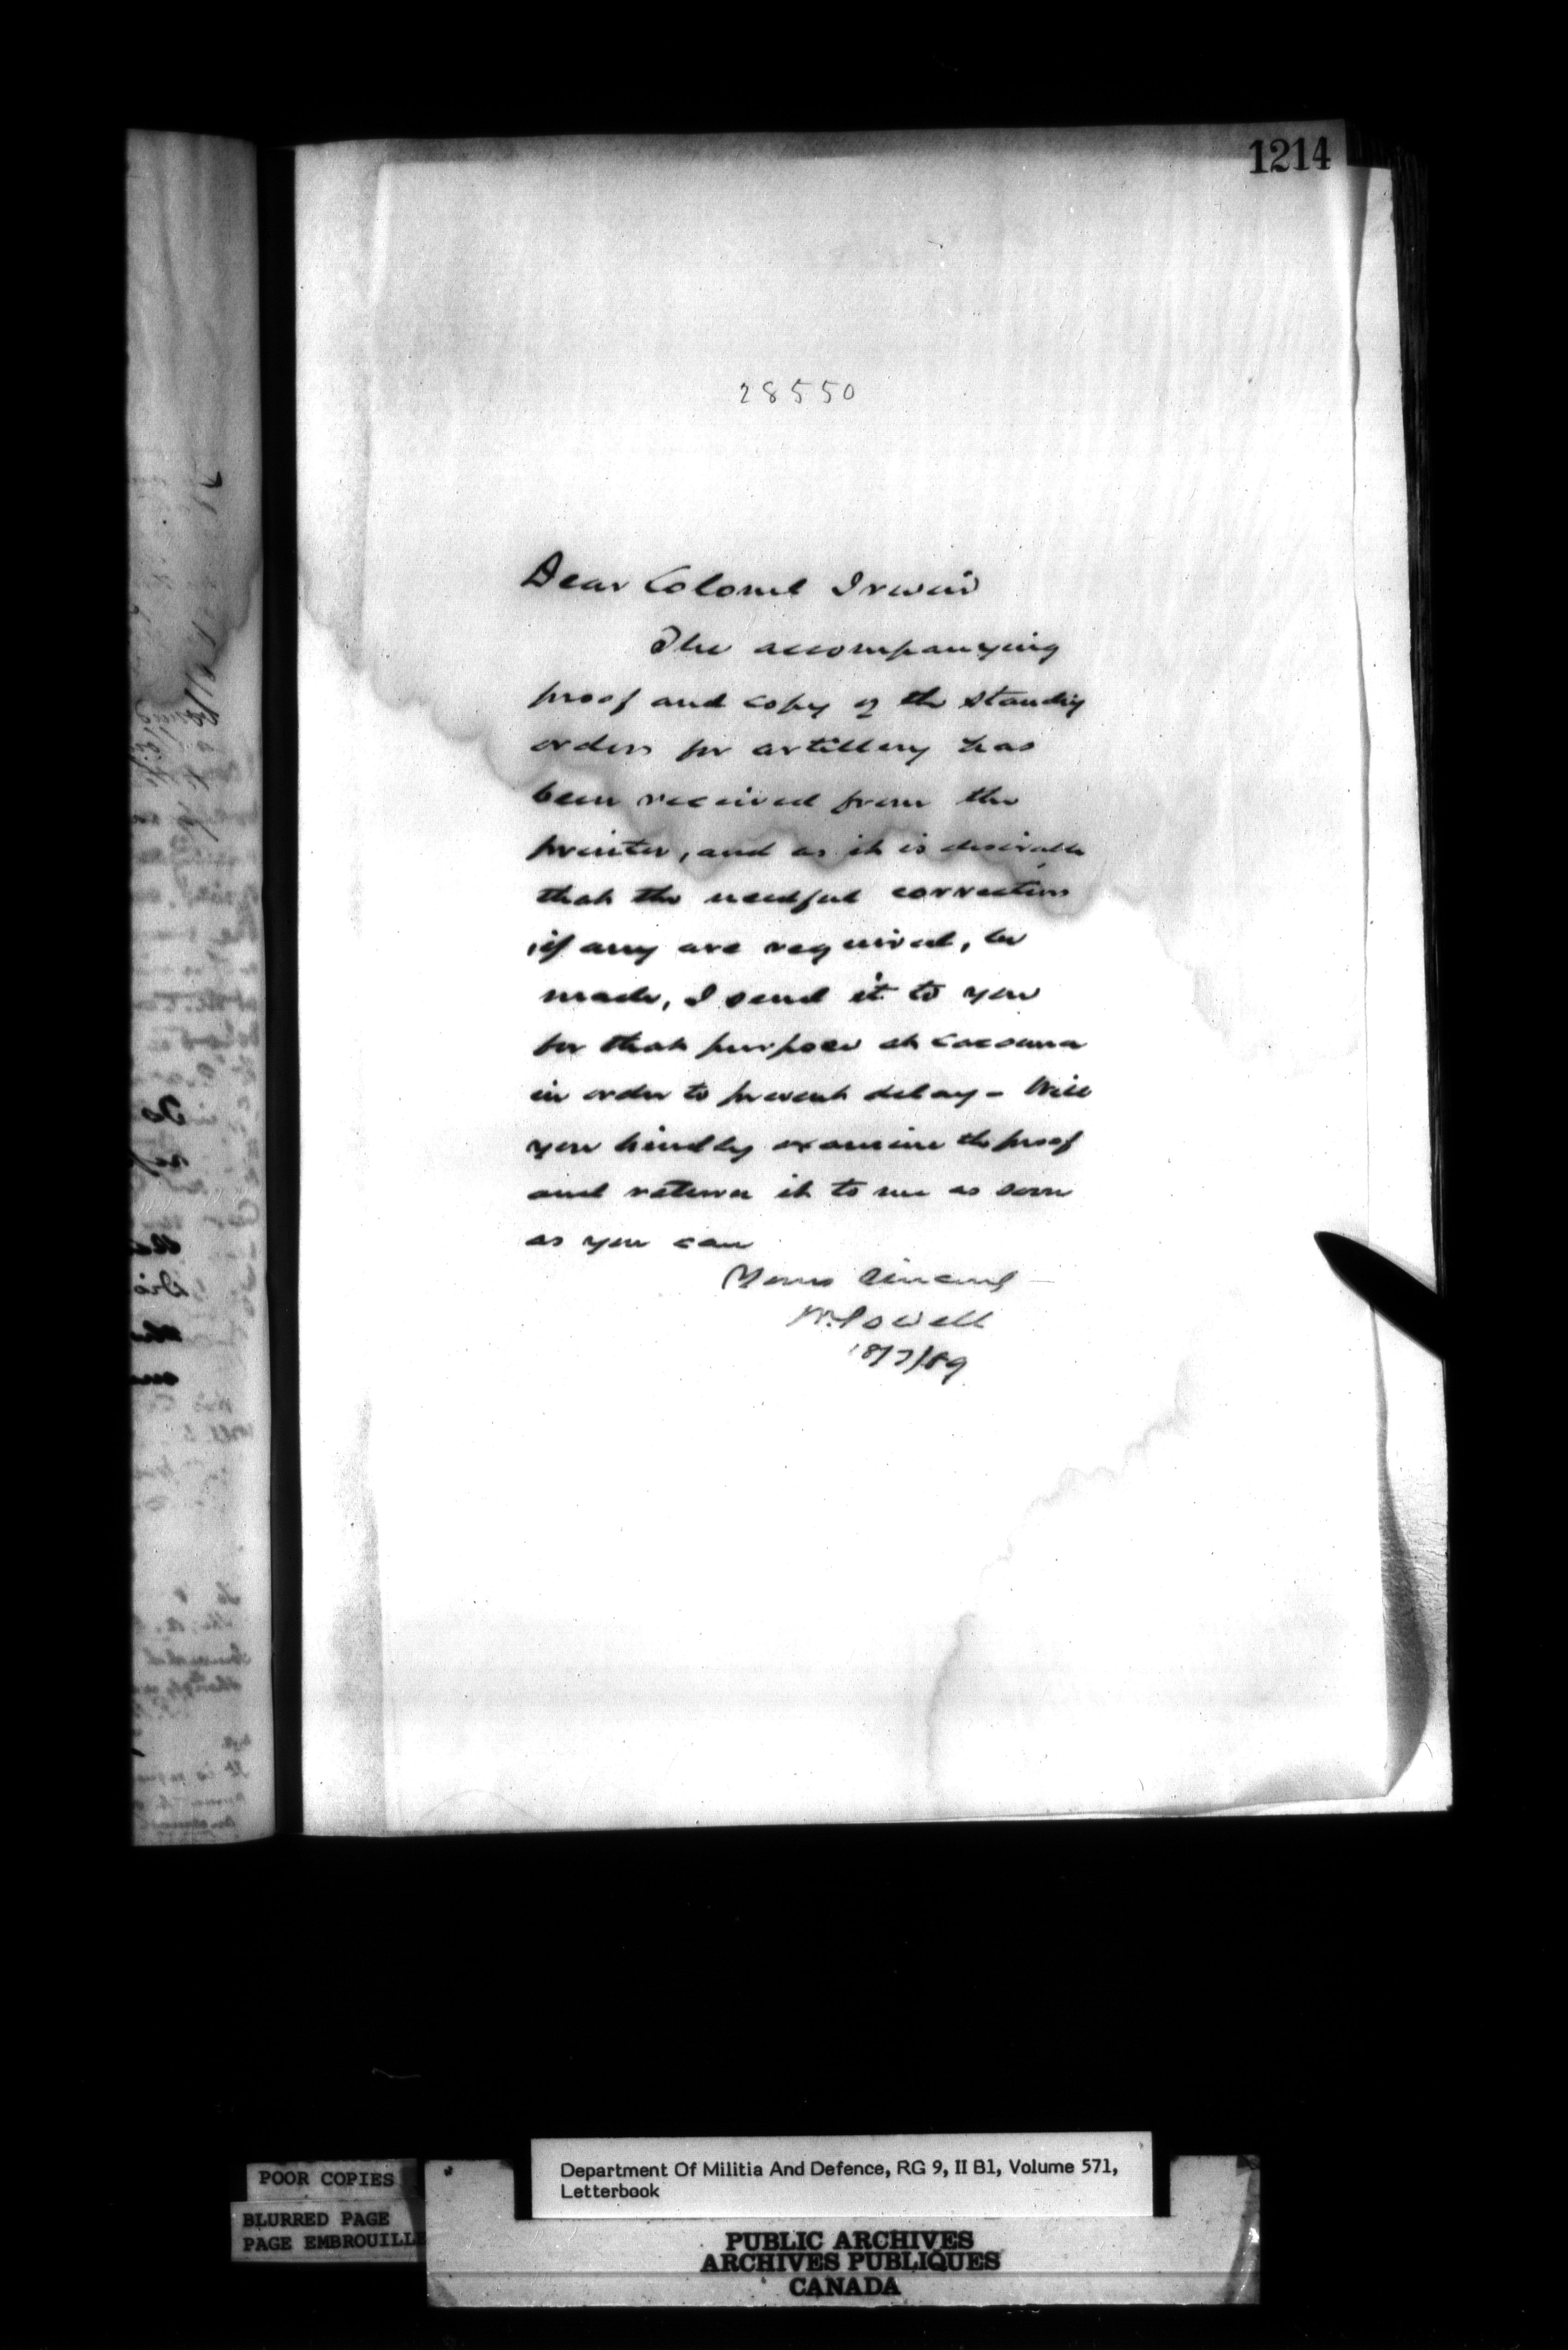 1214
28550
Dear Colonel Irwin
The accompanying
proof and copy of the standing
orders for artillery has
been received from the
printer, and as it is desirable
that the needful corrections
, if any are required, be
made, I send it to you
for that purpose at Cacouna
in order to prevent delay - Will
you kindly examine the proof
and return it to me as soon
as you can
Yours sincerely
W. Powell
18/7/89
POOR COPIES
BLURRED PAGE
PAGE EMBROUILLE
Department Of Militia And Defence, RG 9, II B1, Volume 571,
Letterbook
PUBLIC ARCHIVES
ARCHIVES PUBLIQUES
CANADA